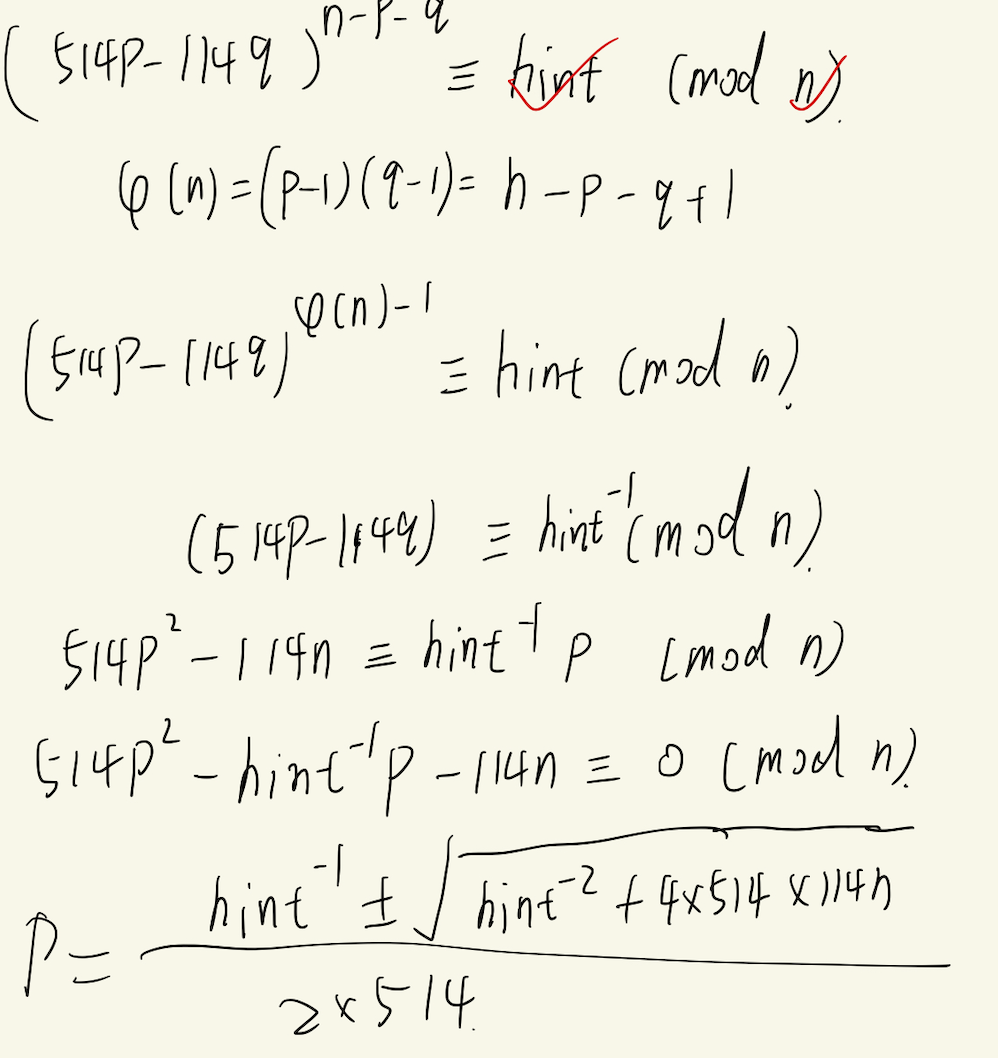 (514p-114q)^{n-p-q} ≡ hint (mod n).
φ(n)=(p-1)(q-1)= n-p-q+1
(514p-114q)^{φ(n)-1} ≡ hint (mod n).
(514p-114q) ≡ hint^{-1} (mod n).
514p^2-114n ≡ hint^{-1} p (mod n)
514p^2-hint^{-1}p-114n ≡ 0 (mod n).
p= \frac{hint^{-1} ± \sqrt{hint^{-2}+4×514×114n}}{2×514.}